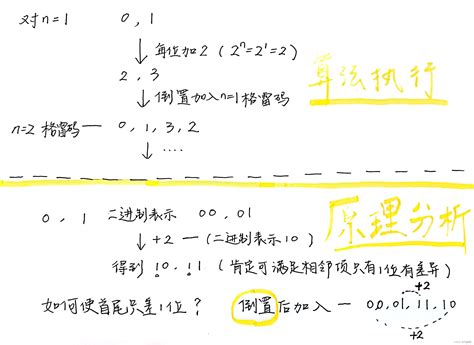 对n=1 0, 1
每位加2 (2ⁿ=2¹=2)
2, 3
算法执行
倒置加入n=1格雷码
n=2 格雷码— 0, 1, 3, 2
....
0, 1 二进制表示 00, 01
原理分析
+2 — (二进制表示10)
得到 10, 11 (肯定可满足相邻项只有1位有差异)
如何使首尾只差1位? 倒置后加入— 00,01,11,10
+2
+2